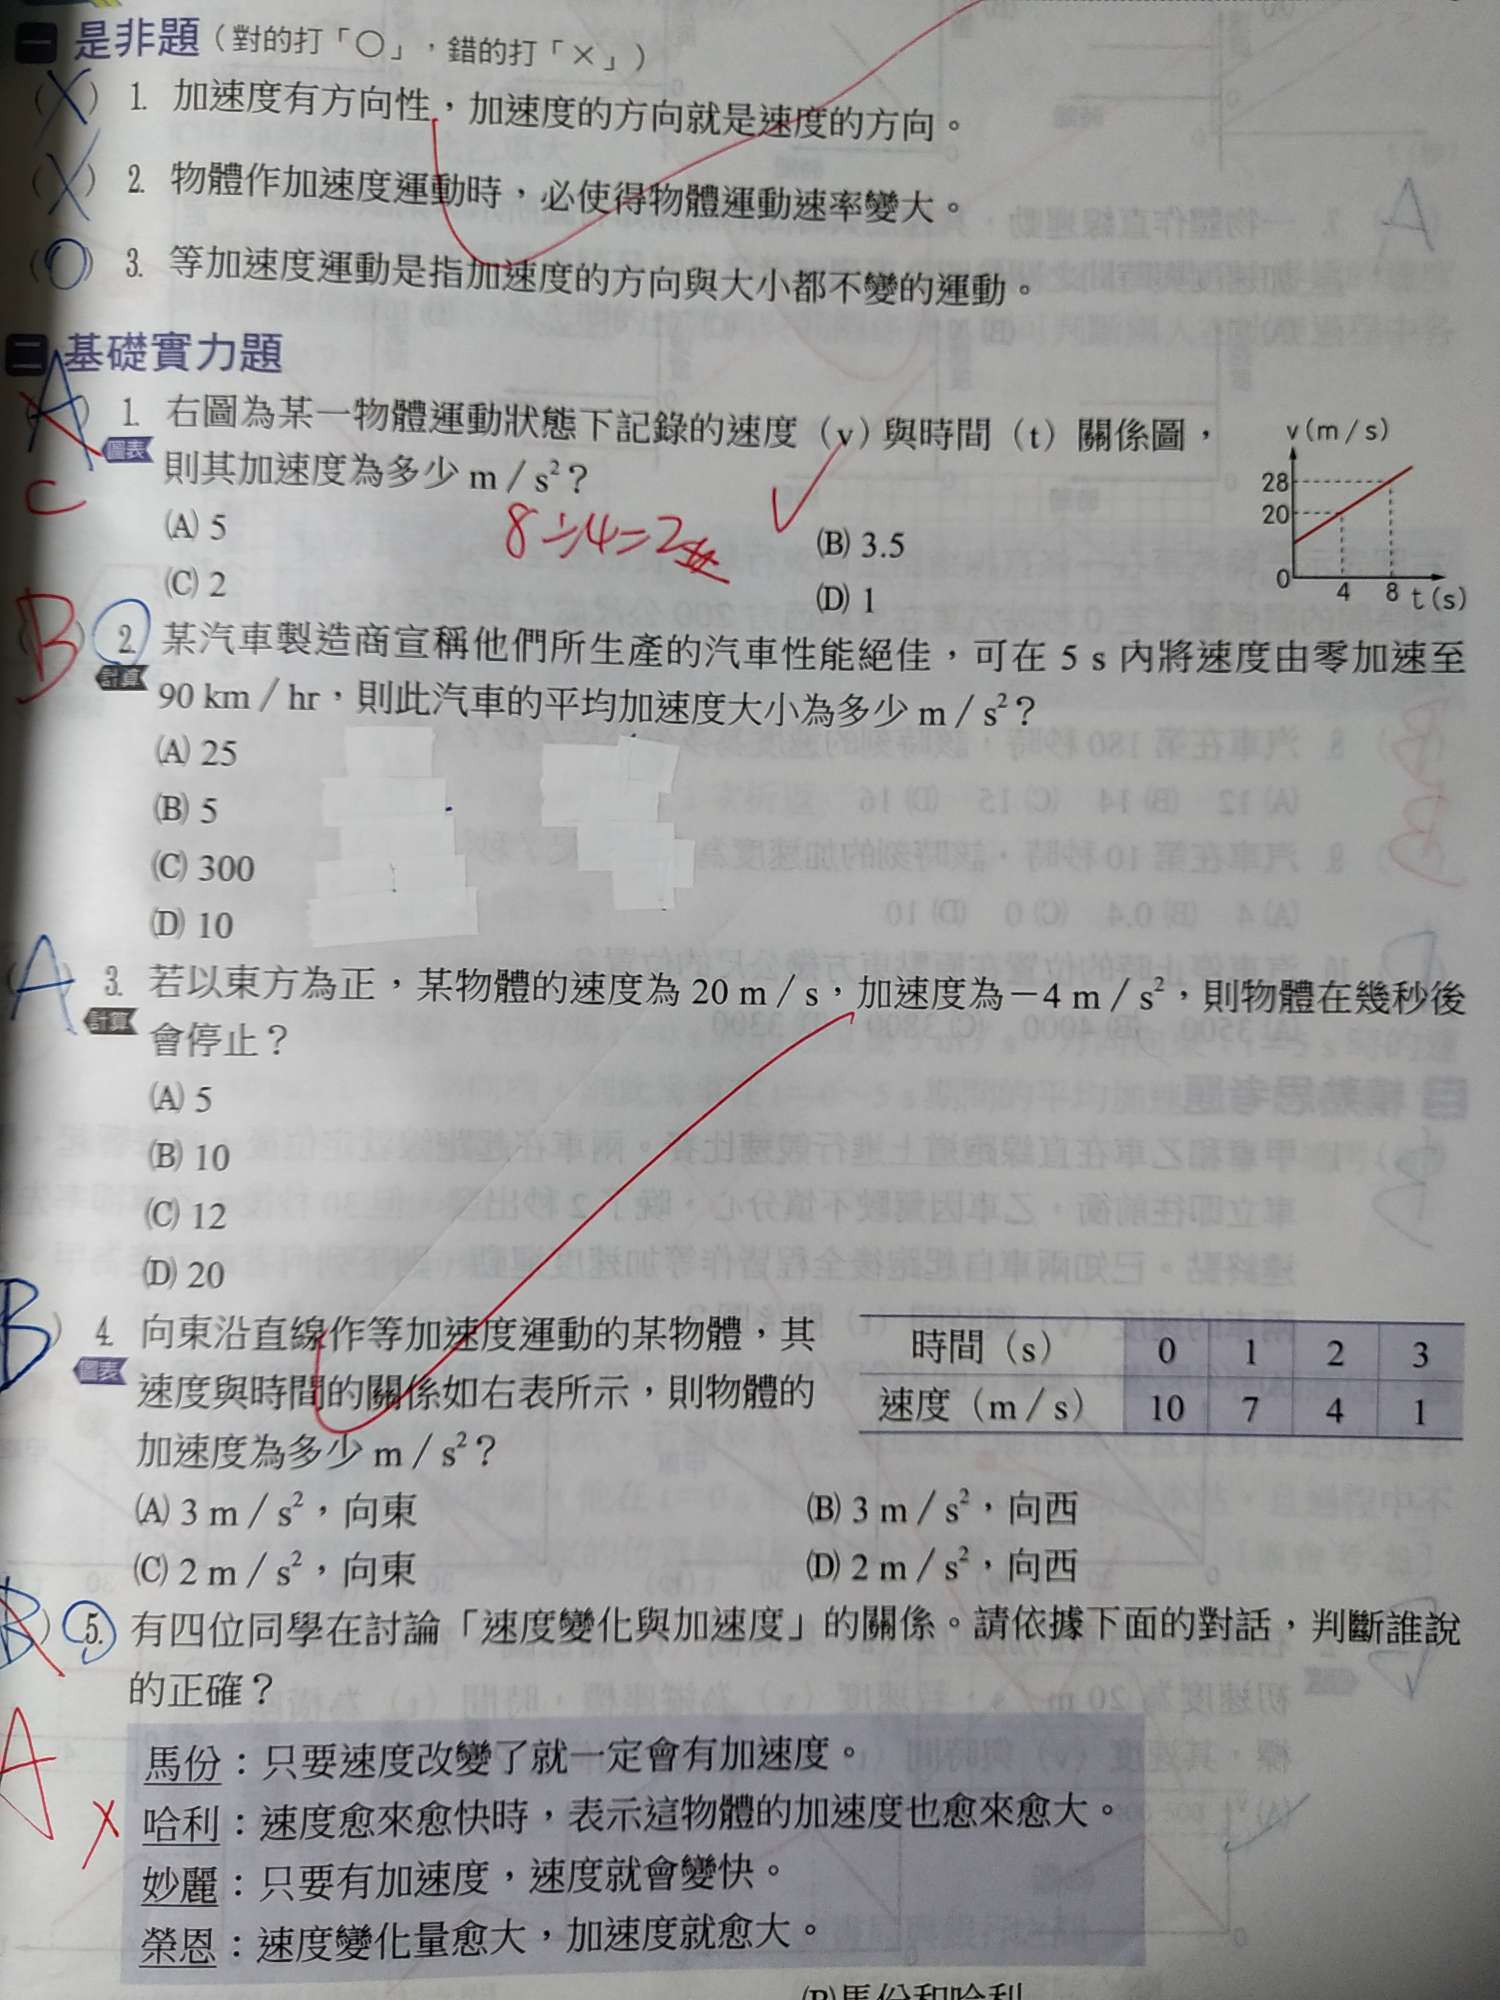 一 是非題（對的打「○」，錯的打「×」）
(X) 1. 加速度有方向性，加速度的方向就是速度的方向。
(X) 2. 物體作加速度運動時，必使得物體運動速率變大。
(O) 3. 等加速度運動是指加速度的方向與大小都不變的運動。
二 基礎實力題
(A) 1. 右圖為某一物體運動狀態下記錄的速度（v）與時間（t）關係圖，
C 圖表 則其加速度為多少 m／s²？
(A) 5
(B) 3.5
8÷4=2
(C) 2
(D) 1
v(m／s)
28
20
0
4 8 t(s)
B 2. 某汽車製造商宣稱他們所生產的汽車性能絕佳，可在 5 s 內將速度由零加速至
計算 90 km／hr，則此汽車的平均加速度大小為多少 m／s²？
(A) 25
(B) 5
(C) 300
(D) 10
(A) 3. 若以東方為正，某物體的速度為 20 m／s，加速度為－4 m／s²，則物體在幾秒後
計算 會停止？
(A) 5
(B) 10
(C) 12
(D) 20
B) 4. 向東沿直線作等加速度運動的某物體，其
圖表 速度與時間的關係如右表所示，則物體的
加速度為多少 m／s²？
時間（s） 0 1 2 3
速度（m／s） 10 7 4 1
(A) 3 m／s²，向東 (B) 3 m／s²，向西
(C) 2 m／s²，向東 (D) 2 m／s²，向西
B) 5. 有四位同學在討論「速度變化與加速度」的關係。請依據下面的對話，判斷誰說
的正確？
A
馬份：只要速度改變了就一定會有加速度。
X 哈利：速度愈來愈快時，表示這物體的加速度也愈來愈大。
妙麗：只要有加速度，速度就會變快。
榮恩：速度變化量愈大，加速度就愈大。
(B)馬份和哈利